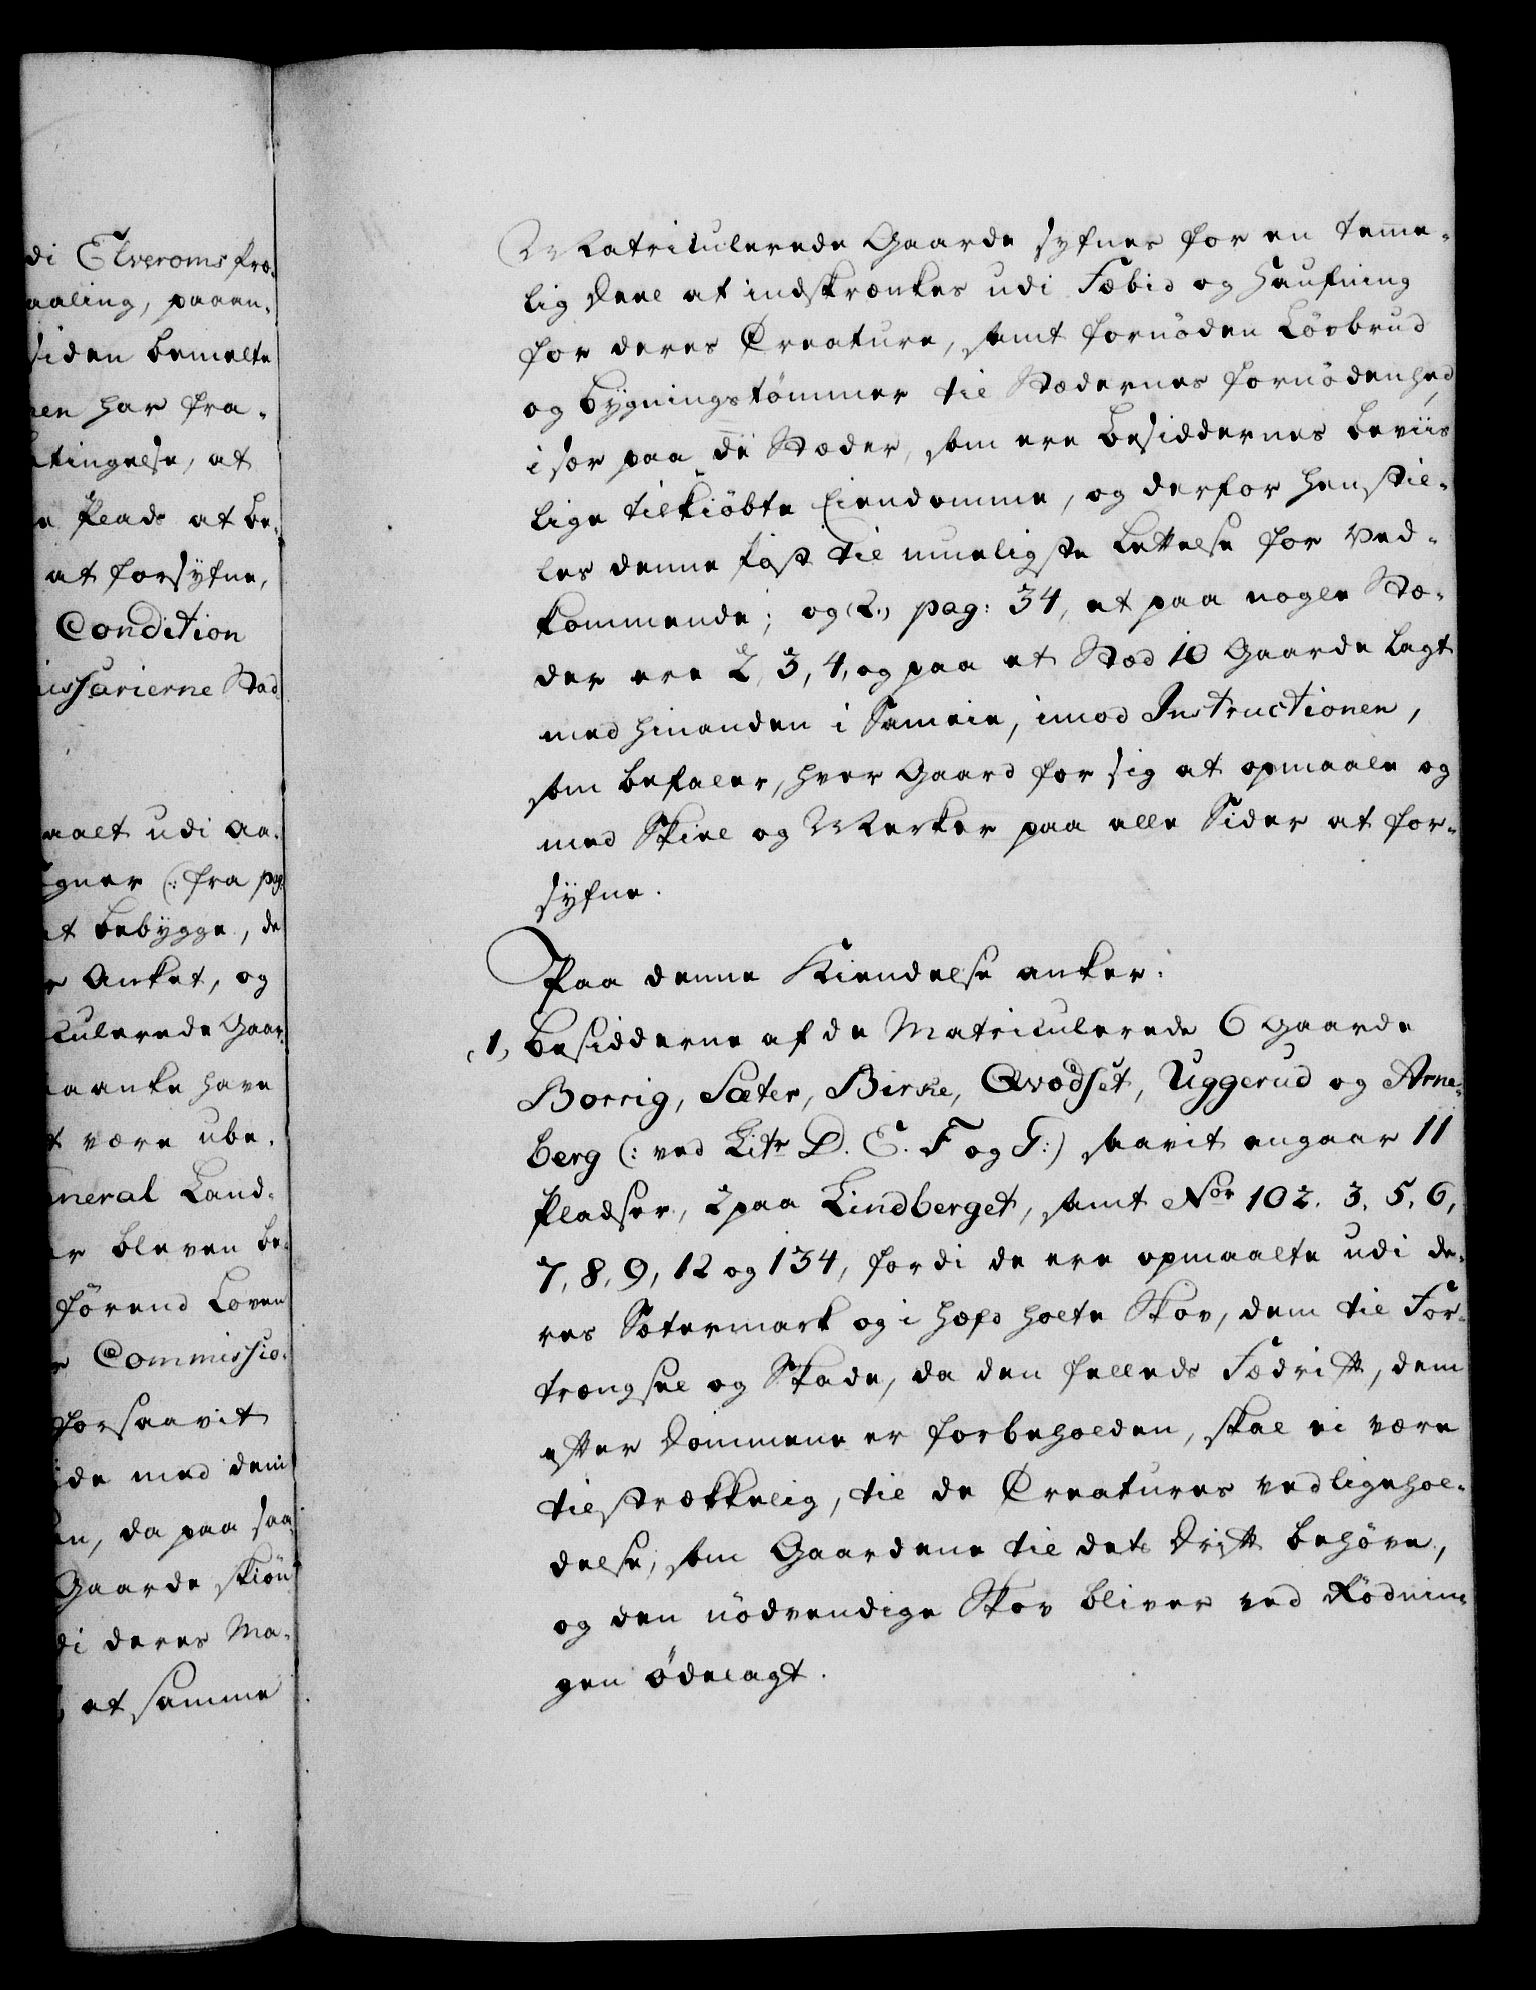 di Elveroms Præ-
aaling, paaan-
siden bemelte
nen har fra-
tingelse, at
e Plads at be-
at forsyfne,
Condition
issarierne Stad
aalt udi Aa-
gner (: fra pag
at bebygge, de
r Anket, og
culerede Gaar-
aanke have
t være ube-
neral Land-
er bleven be-
förend Loven
r Commissio-
forsaavit
de med dem
en, da paa saa
Gaarde skiøn
di deres Ma-
at samme
Matriculerede Gaarde syfnes for en teme-
lig Deel at indskrænkes udi Fæbid og Haufning
for deres Creature, samt fornöden Lövbrud
og Bygningstömmer til Stædernes fornödenhed,
i sær paa de Stæder, som ere Besiddernes beviis
lige tilkiöbte Eiendomme, og derfor henstil-
les denne Post til mueligste Lettelse for Ved-
kommende; og (2.) pag: 34, at paa nogle Stæ-
der ere 2, 3, 4, og paa et Stæd 10 Gaarde lagt
med hinanden i Sameie, imod Instructionen,
som befaler, hver Gaard for sig at opmaale og
med Skiel og Merker paa alle Sider at for-
syfne.
Paa denne Kiendelse anker:
(1, Besidderne af de Matriculerede 6 Gaarde
Borrig, Sæter, Birke, Qvædset, Uggerud og Arne-
berg (: ved Litr D. E. F og G:) saavit angaar 11
Pladser, 2 paa Lindberget, samt Nor 102. 3. 5. 6,
7, 8, 9, 12 og 134, fordi de ere opmaalte udi de-
res Sætermark og i Hæfd holte Skov, dem til For-
trængsel og Skade, da den fælleds Fædrift, dem
efter Dommene er forbeholden, skal ei være
tilstrækkelig, til de Creatures vedligehol-
delse, som Gaardene til dets Drift behöve,
og den nödvendige Skov bliver ved Rödnin-
gen ödelagt.